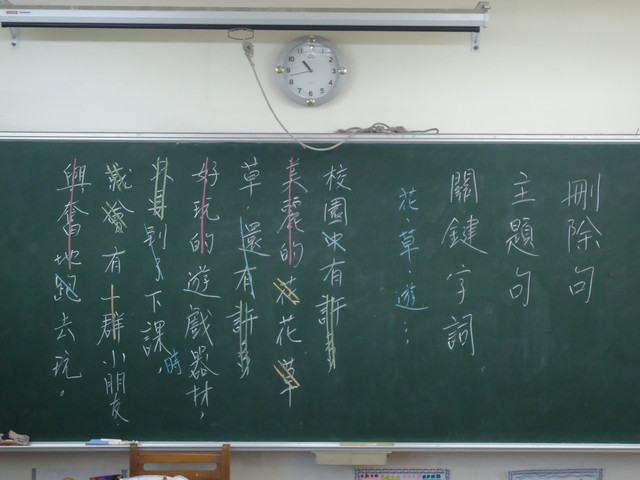 刪除句
主題句
關鍵字詞
花、草、遊…
校園有許多
美麗的花花草
草,還有許多
好玩的遊戲器材,
到了下課,時
會有一群小朋友
興奮地跑去玩。